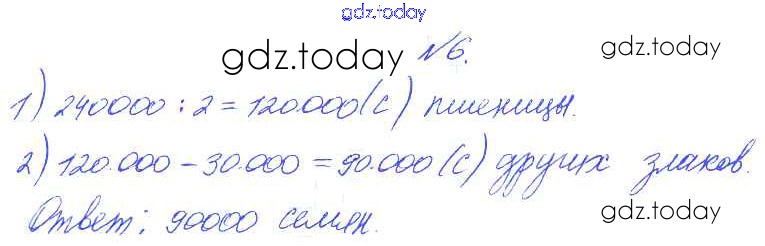 gdz.today
gdz.today №6. gdz.today
1) 240000 : 2 = 120.000 (с) пшеницы.
2) 120.000 – 30.000 = 90.000 (с) других злаков.
Ответ: 90000 семян. gdz.today